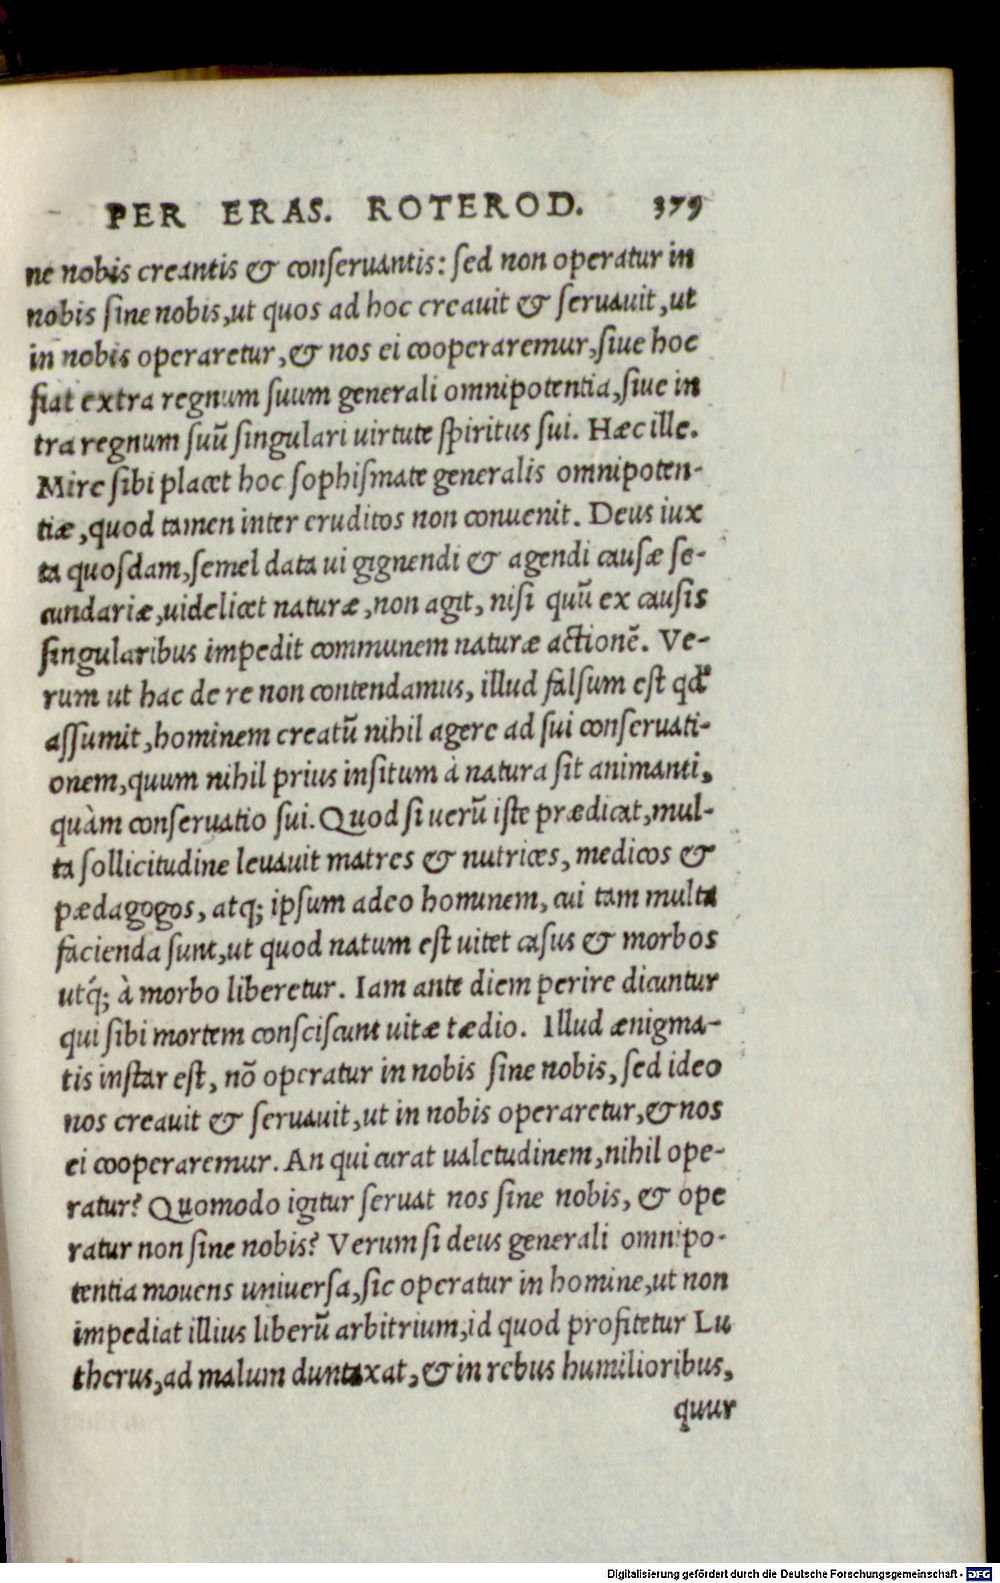 PER ERAS. ROTEROD. 379
ne nobis creantis & conseruantis: sed non operatur in
nobis sine nobis, ut quos ad hoc creauit & seruauit, ut
in nobis operaretur, & nos ei cooperaremur, siue hoc
fiat extra regnum suum generali omnipotentia, siue in
tra regnum suū singulari uirtute spiritus sui. Hæc ille.
Mire sibi placet hoc sophismate generalis omnipoten-
tiæ, quod tamen inter eruditos non conuenit. Deus iux
ta quosdam, semel data ui gignendi & agendi causæ se-
cundariæ, uidelicet naturæ, non agit, nisi quū ex causis
singularibus impedit communem naturæ actionē. Ve-
rum ut hac de re non contendamus, illud falsum est qđ
assumit, hominem creatū nihil agere ad sui conseruati-
onem, quum nihil prius insitum à natura sit animanti,
quàm conseruatio sui. Quod si uerū iste prædicat, mul-
ta sollicitudine leuauit matres & nutrices, medicos &
pædagogos, atq; ipsum adeo hominem, cui tam multa
facienda sunt, ut quod natum est uitet casus & morbos
utq́; à morbo liberetur. Iam ante diem perire dicuntur
qui sibi mortem consciscunt uitæ tædio. Illud ænigma-
tis instar est, nō operatur in nobis sine nobis, sed ideo
nos creauit & seruauit, ut in nobis operaretur, & nos
ei cooperaremur. An qui curat ualetudinem, nihil ope-
ratur? Quomodo igitur seruat nos sine nobis, & ope
ratur non sine nobis? Verum si deus generali omnipo-
tentia mouens uniuersa, sic operatur in homine, ut non
impediat illius liberū arbitrium, id quod profitetur Lu
therus, ad malum duntaxat, & in rebus humilioribus,
quur
Digitalisierung gefördert durch die Deutsche Forschungsgemeinschaft - DFG